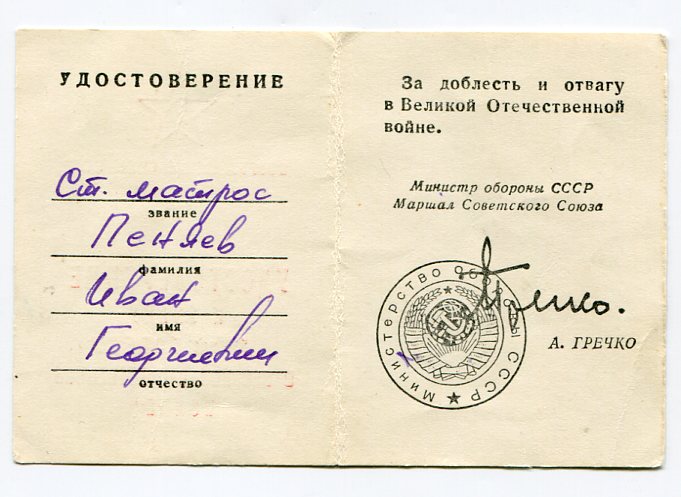 УДОСТОВЕРЕНИЕ
Ст. матрос
звание
Пеняев
фамилия
Иван
имя
Георгиевич
отчество
За доблесть и отвагу
в Великой Отечественной
войне.
Министр обороны СССР
Маршал Советского Союза
Министерство Обороны СССР
А. ГРЕЧКО